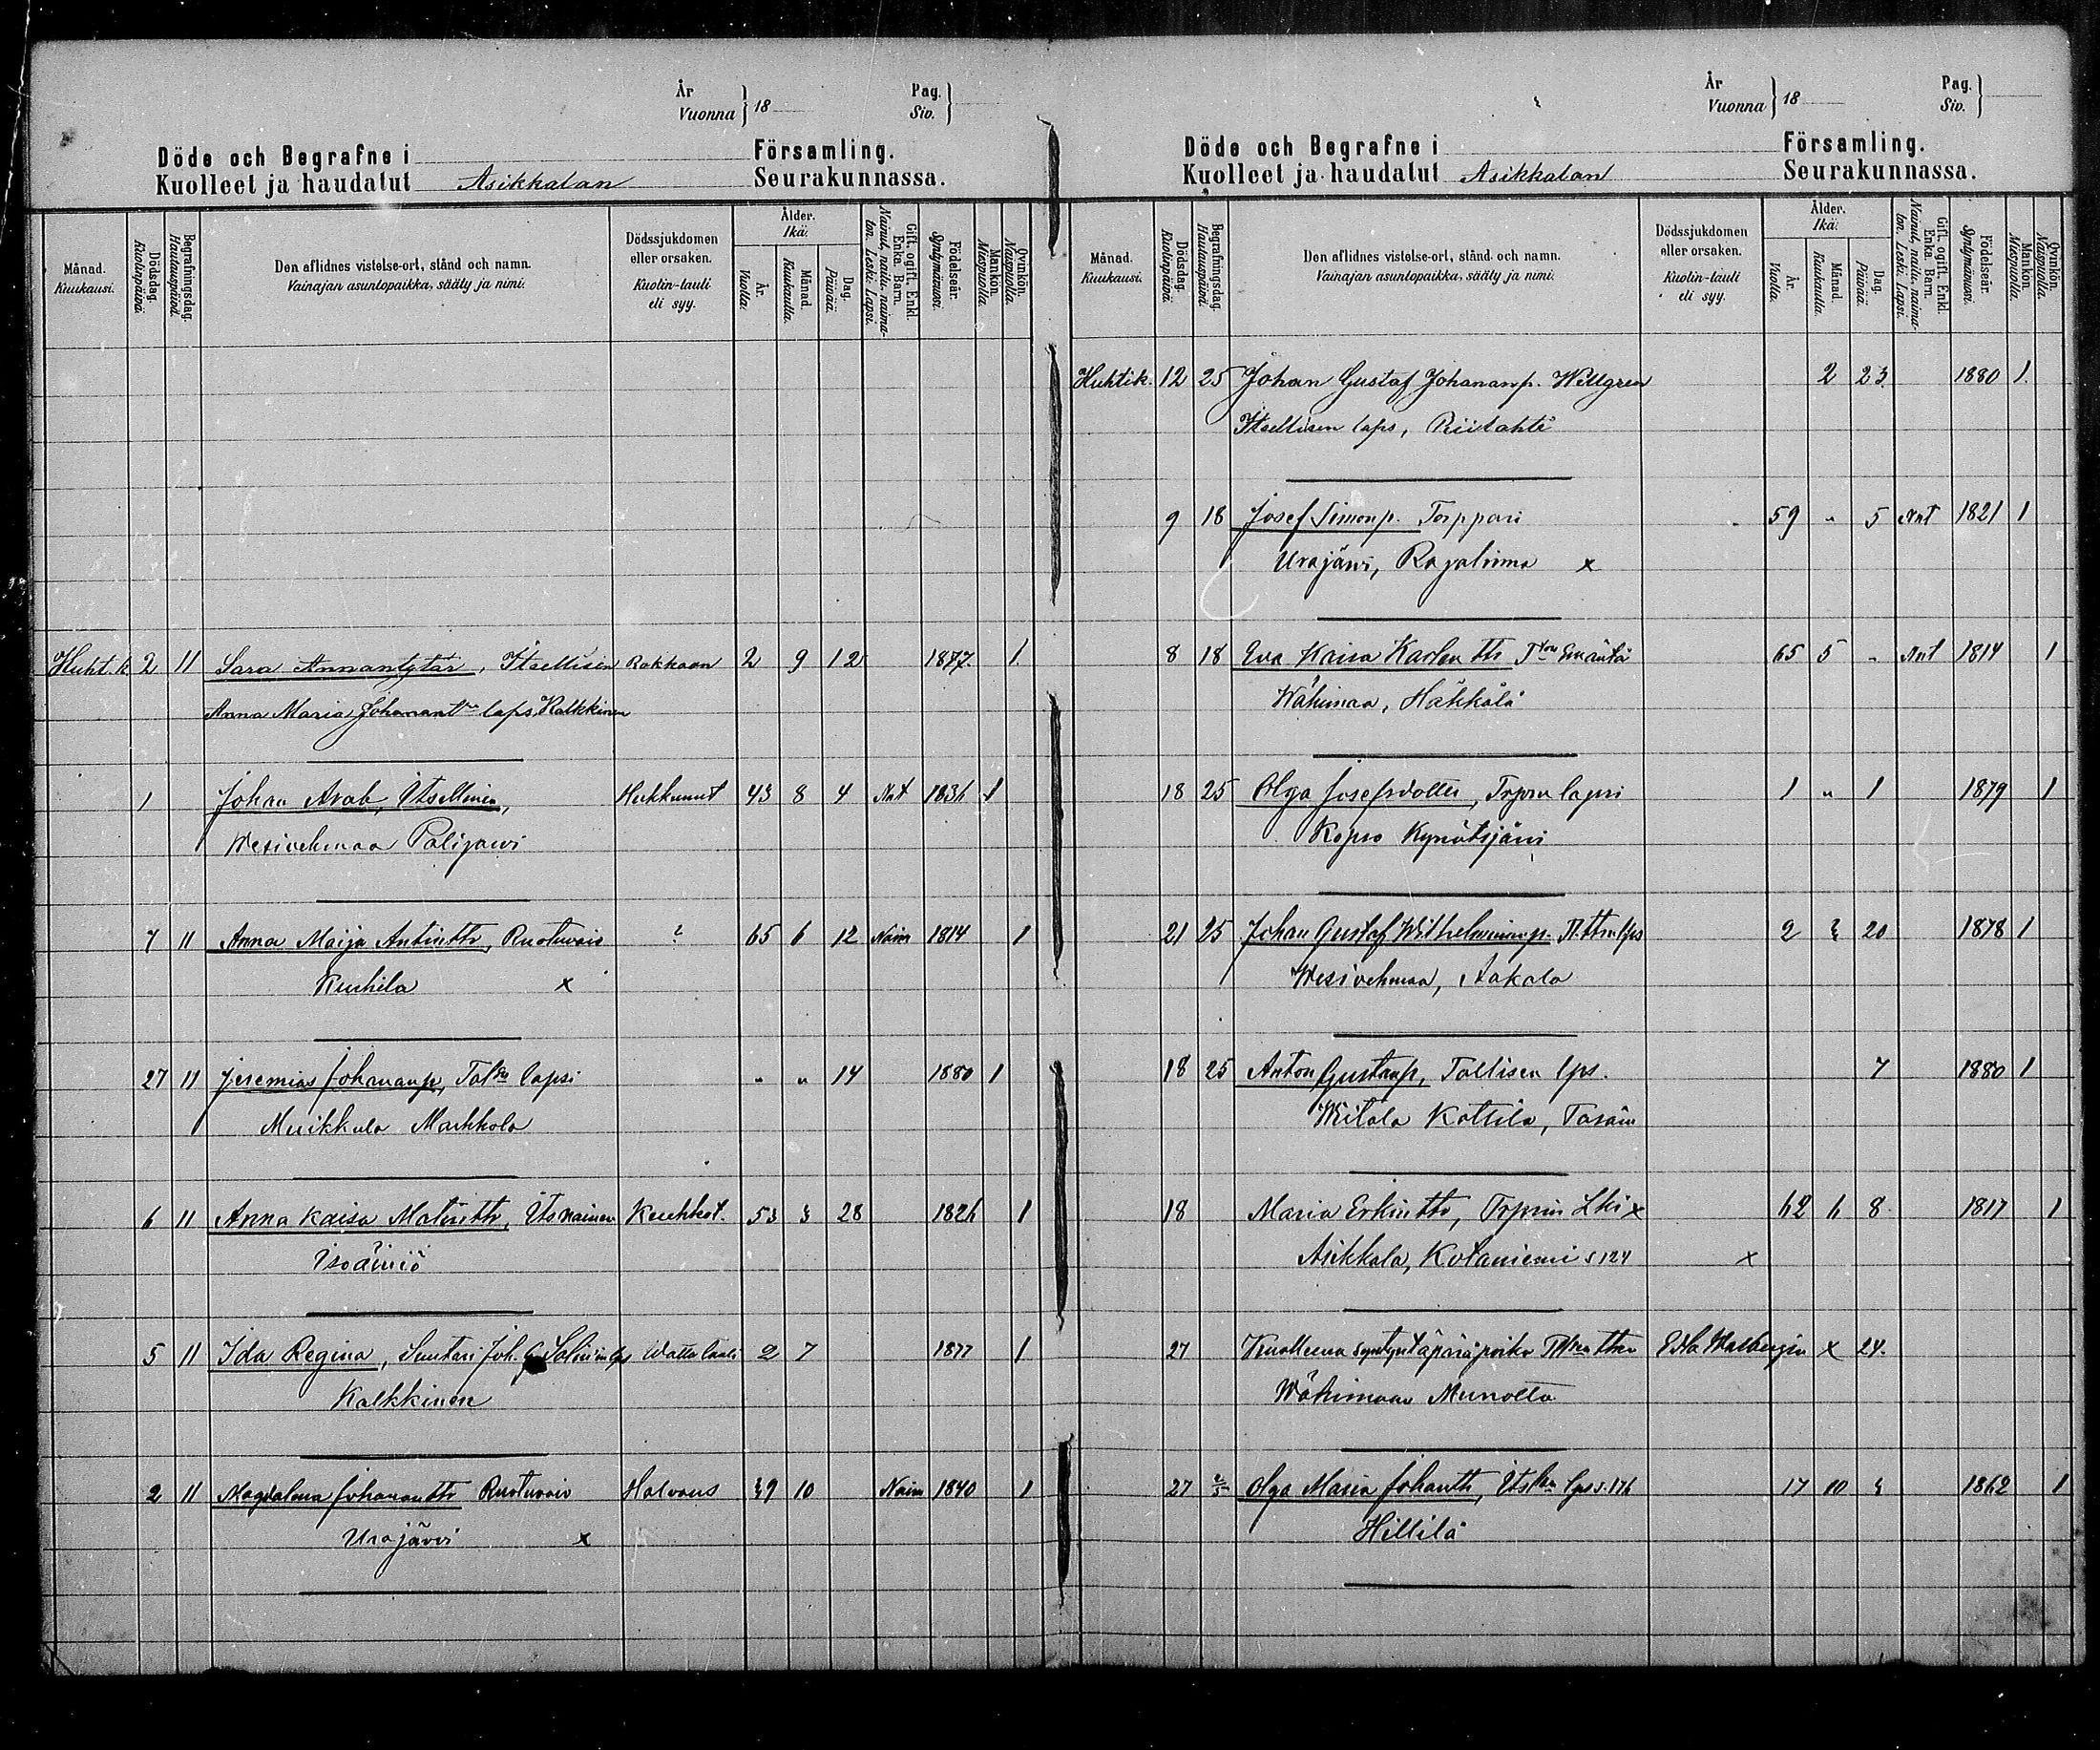 År
Vuonna } 18
Pag.
Siv. }
Döde och Begrafne i Församling.
Kuolleet ja haudatut Asikkalan Seurakunnassa.
Månad.
Kuukausi.
Dödsdag.
Kuolinpäivä.
Begrafningsdag.
Hautauspäivä.
Den aflidnes vistelse-ort, stånd och namn.
Vainajan asuntopaikka, sääty ja nimi.
Dödssjukdomen
eller orsaken.
Kuolin-tauti
eli syy.
Ålder.
Ikä.
År.
Vuotta.
Månad.
Kuukautta.
Dag.
Päivää.
Gift, ogift. Enkl.
Enka. Barn.
Nainut, naitu, naima-
ton. Leski. Lapsi.
Födelseår.
Syntymävuosi.
Mankön.
Miespuolia.
Qvinkön.
Naispuolia.
Huht.k. 2 11 Sara Annantytär, Itsellisen Rokkoon 2 9 12 1877. 1.
Anna Maria Johanant:n laps, Kalkkinen
1 Johan Arab, Itsellinen, Hukkunut 43 8 4 Nnt 1836 1
Wesivehmaa Palijärvi
7 11 Anna Maija Antintr, Ruotuvaiv ? 65 6 12 Naim 1814 1
Kurhila x
27 11 Jeremias Johananp, Tal:sn lapsi " " 14 1880 1
Muikkula Markkola
6 11 Anna Kaisa Matintr, Its nainen Keuhkot. 53 3 28 1826 1
Isoäiniö
5 11 Ida Regina, Suutari Joh. G Salinin lps Watta tauti 2 7 1877 1
Kalkkinen
2 11 Magdalena Johanantr Ruotuvaiv Halvaus 39 10 Naim 1840 1
Urajärvi x
År
Vuonna } 18
Pag.
Siv. }
Döde och Begrafne i Församling.
Kuolleet ja haudatut Asikkalan Seurakunnassa.
Månad.
Kuukausi.
Dödsdag.
Kuolinpäivä.
Begrafningsdag.
Hautauspäivä.
Den aflidnes vistelse-ort, stånd och namn.
Vainajan asuntopaikka, sääty ja nimi.
Dödssjukdomen
eller orsaken.
Kuolin-tauti
eli syy.
Ålder.
Ikä.
År.
Vuotta.
Månad.
Kuukautta.
Dag.
Päivää.
Gift, ogift. Enkl.
Enka. Barn.
Nainut, naitu, naima-
ton. Leski. Lapsi.
Födelseår.
Syntymävuosi.
Mankön.
Miespuolia.
Qvinkön.
Naispuolia.
Huhtik. 12 25 Johan Gustaf Johananp. Willgren 2 23. 1880 1.
Itsellisen laps, Riilahti
9 18 Josef Simonp. Torppari 59 " 5 Nnt 1821 1
Urajärvi, Rajalinna x
8 18 Eva Kaisa Karlentr Emäntä 65 5 " Nnt 1814 1
Wähimaa, Häkkälä
18 25 Olga Josefsdotter, Trprn lapsi 1 " 1 1879 1
Kopso Kynätsjärvi
21 25 Johan Gustaf Wilhelminanp. lps 2 3 20 1878 1
Wesivehmaa, Aakala
18 25 Anton Gustanp, Tallisen lps. 7 1880 1
Witala Kottila,
18 Maria Erkintr, Trprin Lki x 62 6 8. 1817 1
Asikkala, Kotaniemi S 124 x
27 Kuolleena syntynt äpäräpoika x 24.
Wähimaan
27 2/5 Olga Maria Johantr, Its:sen lps s. 176 17 10 3 1862 1
Hillilä